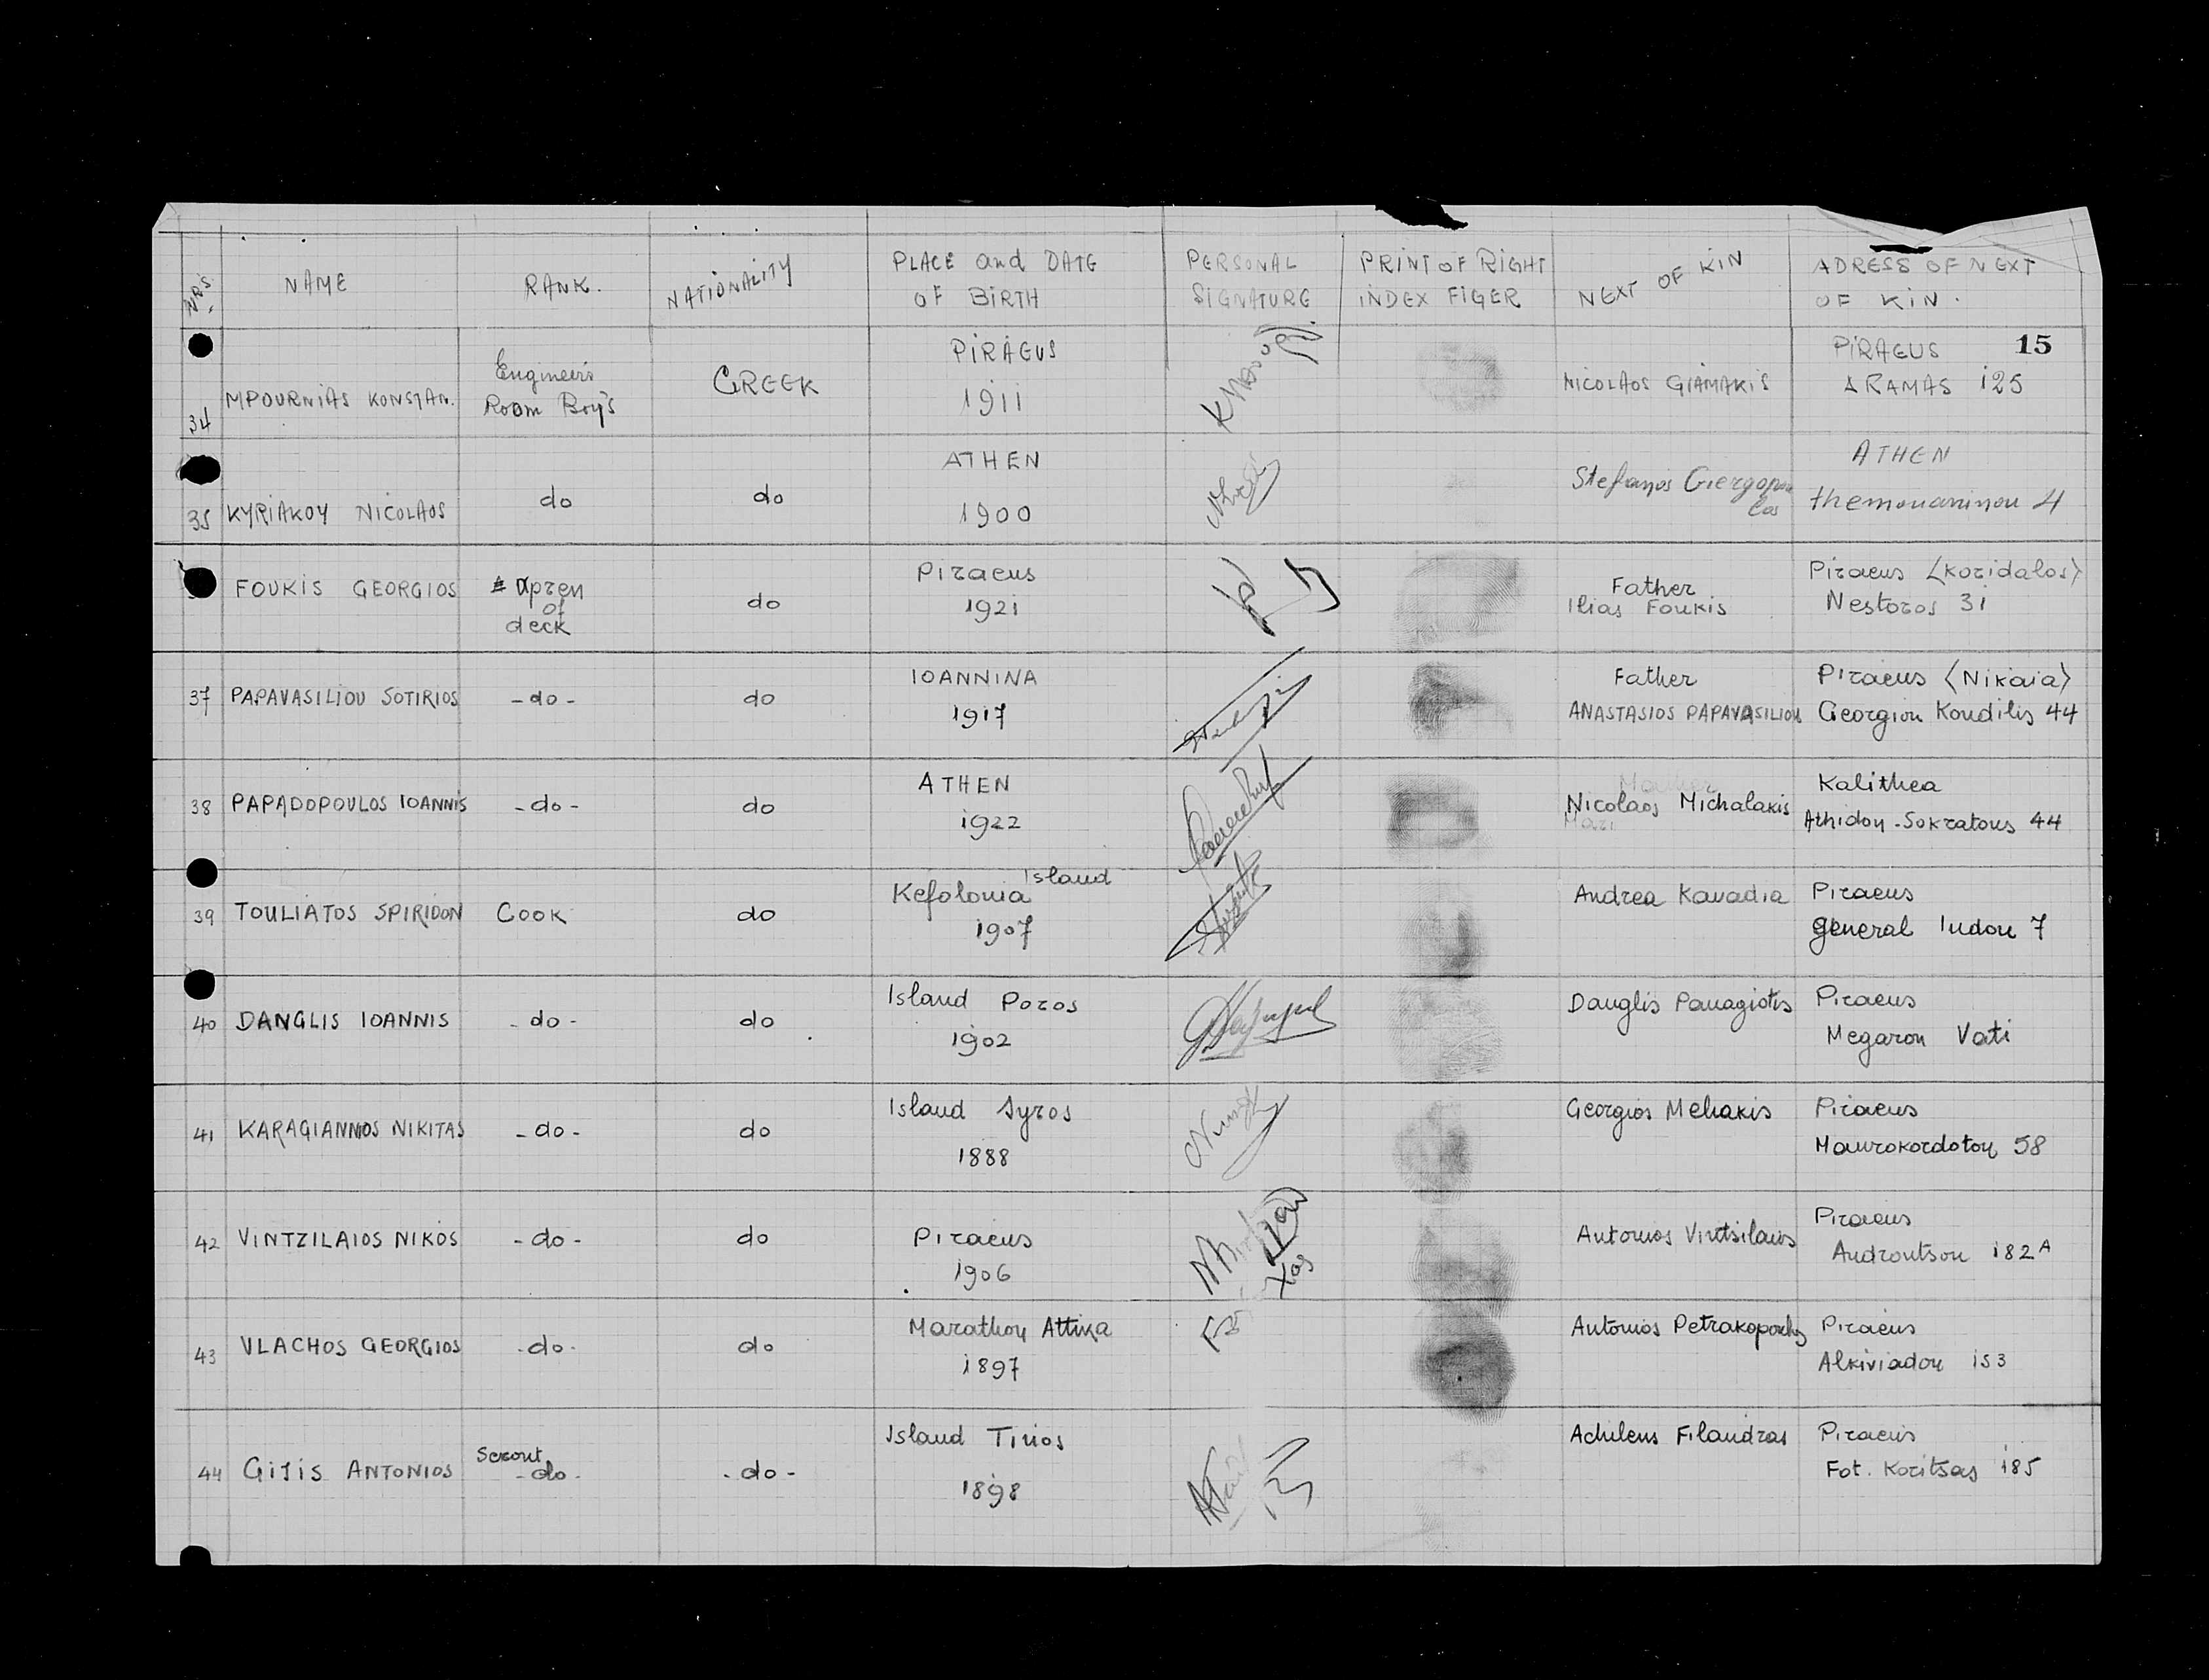 NRS. NAME RANK. NATIONALITY PLACE and DATE OF BIRTH PERSONAL SIGNATURE PRINT OF RIGHT INDEX FIGER NEXT OF KIN ADRESS OF NEXT OF KIN.
15
34 MPOURNIAS KONSTAN. Engineers Room Boy's GREEK PIRAEUS 1911 NICOLAOS GIAMAKIS PIRAEUS ΔRAMAS 125
35 KYRIAKOY NICOLAOS do do ATHEN 1900 Stefanos ATHEN 4
FOUKIS GEORGIOS apren of deck do Piraeus 1921 Father Ilias Foukis Piraeus <Koridalos> Nestoros 31
37 PAPAVASILIOU SOTIRIOS -do- do IOANNINA 1917 Father ANASTASIOS PAPAVASILIOU Piraeus <Nikaia> Georgiou Kondilis 44
38 PAPADOPOULOS IOANNIS -do- do ATHEN 1922 Nicolaos Michalakis Kalithea Athidon-Sokratous 44
39 TOULIATOS SPIRIDON COOK do Kefolonia Island 1907 Andrea Kavadia Piraeus general 7
40 DANGLIS IOANNIS -do- do Island Poros 1902 Danglis Panagiotis Piraeus Megaron Vati
41 KARAGIANNOS NIKITAS -do- do Island Syros 1888 Georgios Piraeus Maurokordotou 58
42 VINTZILAIOS NIKOS -do- do Piraeus 1906 Antonios Vintsilaios Piraeus Androutsou 182 A
43 VLACHOS GEORGIOS -do- do Marathon Attika 1897 Antonios Piraeus Alkiviadou 153
44 ANTONIOS -do- -do- Island Tinos 1898 Achileus Filandras Piraeus Fot. Koritsas 185